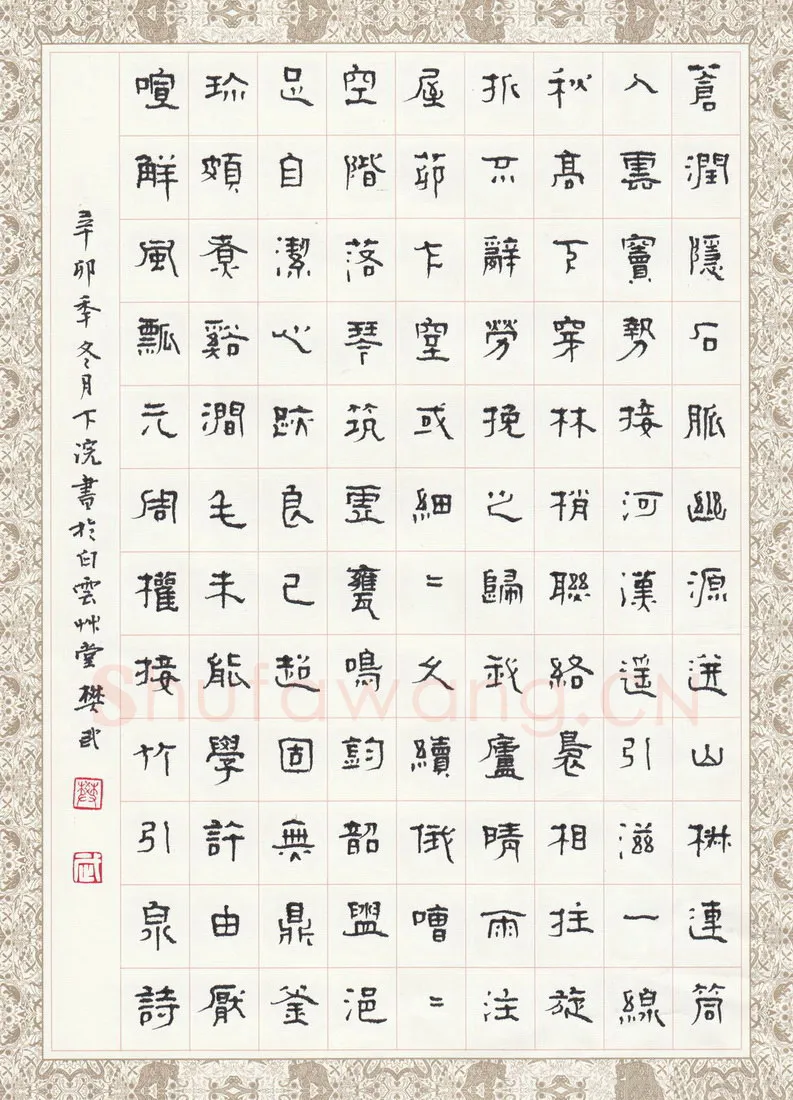 蒼潤隱石脈幽源迸山椒連筒
入雲竇勢接河漢遥引滋一線
秋高下穿林梢聯絡裊相拄旋
折不辭勞挽之歸我廬晴雨注
屋茆乍窒或細〻久續俄嘈〻
空階落琴筑虛甕鳴鈞韶盥浥
足自潔心跡良已超固無鼎釜
珎頗煮谿澗毛未能學許由厭
喧觧風瓢元周權接竹引泉詩
辛卯季冬月下浣書於白雲艸堂樊武
樊
武
Shufawang.CN